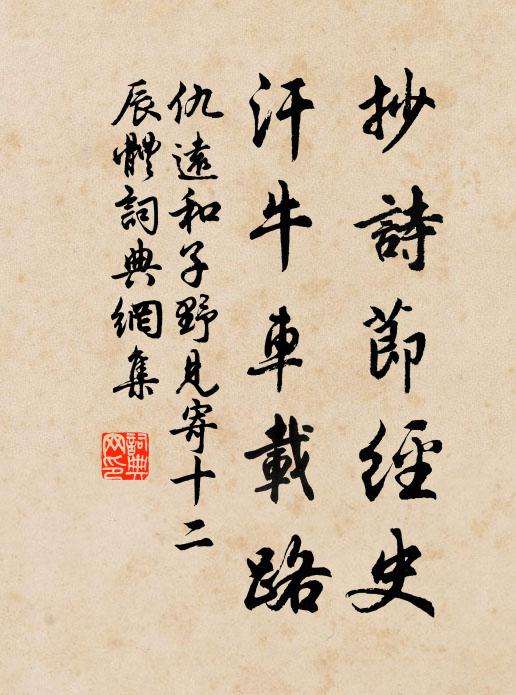 抄詩節經史
汗牛車載路
仇遠和子野見寄十二
辰體詞典網集
詞典網印